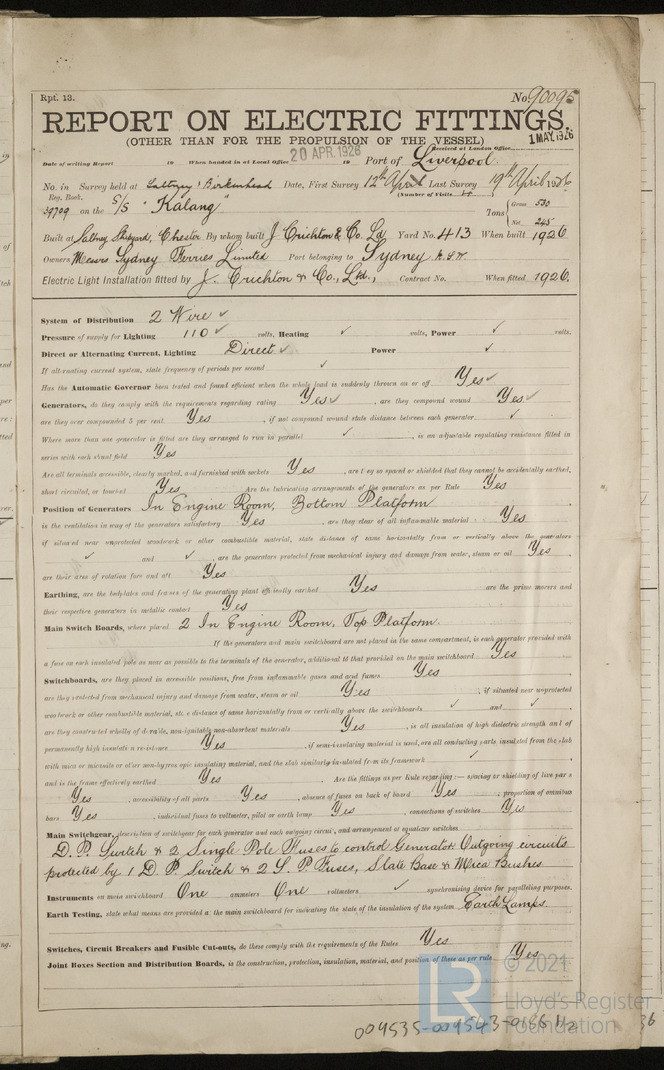 Rpt. 13. No. 90095
REPORT ON ELECTRIC FITTINGS.
(OTHER THAN FOR THE PROPULSION OF THE VESSEL)
Received at London Office 1 MAY 1926
Date of writing Report 19 When handed in at Local Office 20 APR. 1926 19 Port of Liverpool
No. in Survey held at Saltney & Birkenhead Date, First Survey 12th April Last Survey 19th April 1926
Reg. Book. (Number of Visits 4)
39709 on the S/S "Kalang" Tons { Gross 530
Net 245
Built at Saltney Shipyard, Chester By whom built J Crichton & Co. Ld Yard No. 413 When built 1926
Owners Messrs Sydney Ferries Limited Port belonging to Sydney N.S.W.
Electric Light Installation fitted by J. Crichton & Co., Ltd., Contract No. When fitted 1926.
System of Distribution 2 Wire ✓
Pressure of supply for Lighting 110 ✓ volts, Heating ✓ volts, Power ✓ volts.
Direct or Alternating Current, Lighting Direct ✓ Power ✓
If alternating current system, state frequency of periods per second ✓
Has the Automatic Governor been tested and found efficient when the whole load is suddenly thrown on or off Yes ✓
Generators, do they comply with the requirements regarding rating Yes ✓ , are they compound wound Yes ✓
are they over compounded 5 per cent. Yes , if not compound wound state distance between each generator ✓
Where more than one generator is fitted are they arranged to run in parallel ✓ , is an adjustable regulating resistance fitted in
series with each shunt field Yes
Are all terminals accessible, clearly marked, and furnished with sockets Yes , are they so spaced or shielded that they cannot be accidentally earthed,
short circuited, or touched Yes Are the lubricating arrangements of the generators as per Rule Yes
Position of Generators In Engine Room, Bottom Platform
is the ventilation in way of the generators satisfactory Yes , are they clear of all inflammable material Yes
if situated near unprotected woodwork or other combustible material, state distance of same horizontally from or vertically above the generators
✓ and ✓ , are the generators protected from mechanical injury and damage from water, steam or oil Yes
are their axes of rotation fore and aft Yes
Earthing, are the bedplates and frames of the generating plant efficiently earthed Yes are the prime movers and
their respective generators in metallic contact Yes
Main Switch Boards, where placed 2 In Engine Room, Top Platform.
If the generators and main switchboard are not placed in the same compartment, is each generator provided with
a fuse on each insulated pole as near as possible to the terminals of the generator, additional to that provided on the main switchboard Yes
Switchboards, are they placed in accessible positions, free from inflammable gases and acid fumes Yes
are they protected from mechanical injury and damage from water, steam or oil Yes , if situated near unprotected
woodwork or other combustible material, state distance of same horizontally from or vertically above the switchboards ✓ and ✓
are they constructed wholly of durable, non-ignitable non-absorbent materials Yes , is all insulation of high dielectric strength and of
permanently high insulation resistance Yes , if semi-insulating material is used, are all conducting parts insulated from the slab
with mica or micanite or other non-hygroscopic insulating material, and the slab similarly insulated from its framework ✓
and is the frame effectively earthed Yes Are the fittings as per Rule regarding:— spacing or shielding of live parts
Yes , accessibility of all parts Yes , absence of fuses on back of board Yes , proportion of omnibus
bars Yes , individual fuses to voltmeter, pilot or earth lamp Yes , connections of switches Yes
Main Switchgear, description of switchgear for each generator and each outgoing circuit, and arrangement of equalizer switches
D.P. Switch & 2 Single Pole Fuses to control Generator. Outgoing circuits
protected by 1 D.P. Switch & 2 S.P. Fuses, Slate Base & Mica Bushes
Instruments on main switchboard One ammeters One voltmeters ✓ synchronizing device for paralleling purposes.
Earth Testing, state what means are provided at the main switchboard for indicating the state of the insulation of the system Earth Lamps.
Switches, Circuit Breakers and Fusible Cut-outs, do these comply with the requirements of the Rules Yes
Joint Boxes Section and Distribution Boards, is the construction, protection, insulation, material, and position of these as per rule Yes
© 2021
Lloyd's Register
Foundation
004535-004543-0186 1/2